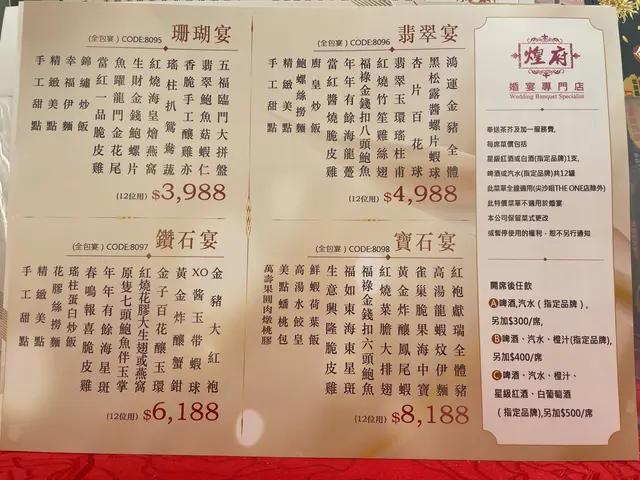 珊瑚宴
(全包宴) CODE:8095
五福臨門大拼盤
香脆手工釀蝦仁
翡翠鮑魚菇亦
瑤柱扒鴛鴦蔬
紅燒海皇燴燕窩
生財金錢鮑螺
魚躍龍門金花尾
當紅一品脆皮雞
錦繡炒飯
幸福伊麵
精緻美點
手工甜點
(12位用) $3,988
翡翠宴
(全包宴) CODE:8096
鴻運金豬全體
黑松露醬螺片蝦球
杏片百花球
翡翠玉環瑤柱甫
紅燒竹笙雞絲翅
福祿金錢扣八頭鮑魚
年年有餘海龍躉
當紅醬燒脆皮雞
廚皇炒飯
鮑螺絲撈麵
精緻美點
手工甜點
(12位用) $4,988
鑽石宴
(全包宴) CODE:8097
金豬大紅袍
XO醬玉帶蝦球
黃金炸釀蟹鉗
金子百花釀玉環
紅燒花膠大生翅或燕窩
原隻七頭鮑魚伴玉掌
年年有餘海星斑
春鳴報喜脆皮雞
瑤柱蛋白炒飯
花膠絲撈麵
精緻美點
手工甜點
(12位用) $6,188
寶石宴
(全包宴) CODE:8098
紅袍獻瑞全體豬
高湯龍蝦炆伊麵
雀巢脆果海中寶
黃金炸釀鳳尾蝦
紅燒菜膽大排翅
福祿金錢扣六頭鮑魚
福如東海東星斑
生意興隆脆皮雞
鮮蝦荷葉飯
高湯水餃皇
美點蟠桃包
萬壽果圓肉燉桃膠
(12位用) $8,188
煌府
婚宴專門店
Wedding Banquet Specialist
奉送茶芥及加一服務費,
每席菜價包括
星級紅酒或白酒(指定品牌)1支,
啤酒或汽水(指定品牌)共12罐
此菜單全線適用(尖沙咀THE ONE店除外)
此特價菜單不適用於婚宴
本公司保留菜式更改
或暫停使用的權利，恕不另行通知
開席後任飲
A啤酒,汽水 ( 指定品牌 ) ,
另加$300/席,
B啤酒、汽水、橙汁(指定品牌),
另加$400/席
C啤酒、汽水、橙汁、
星級紅酒、白葡萄酒
( 指定品牌),另加$500/席